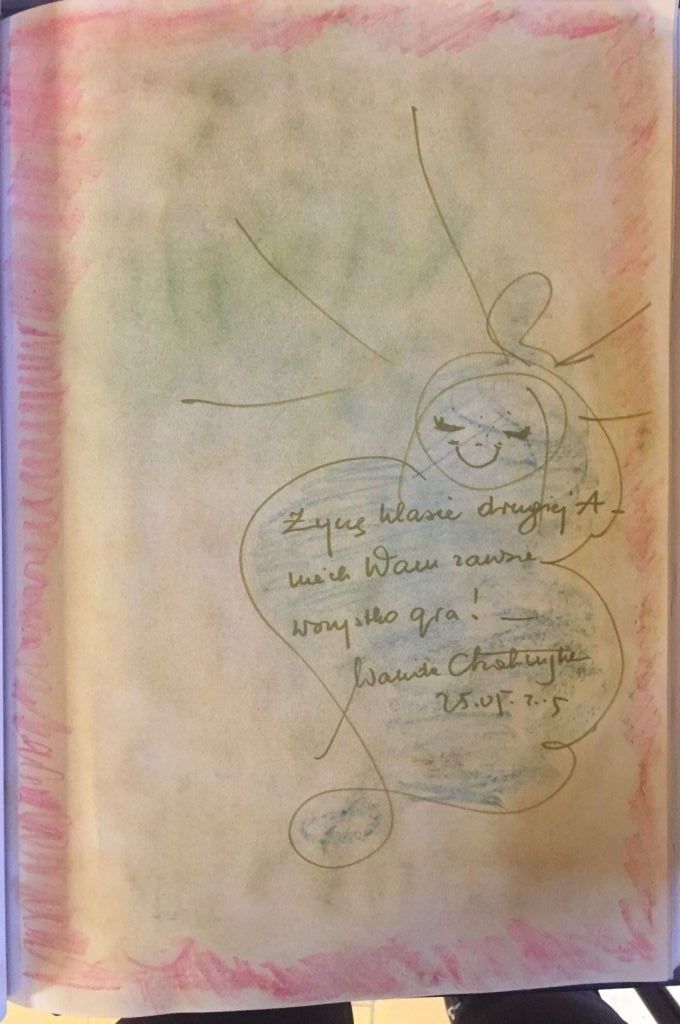 Życzę klasie drugiej A –
niech Wam zawsze
wszystko gra! —
Wanda Chotomska
25.05.2005